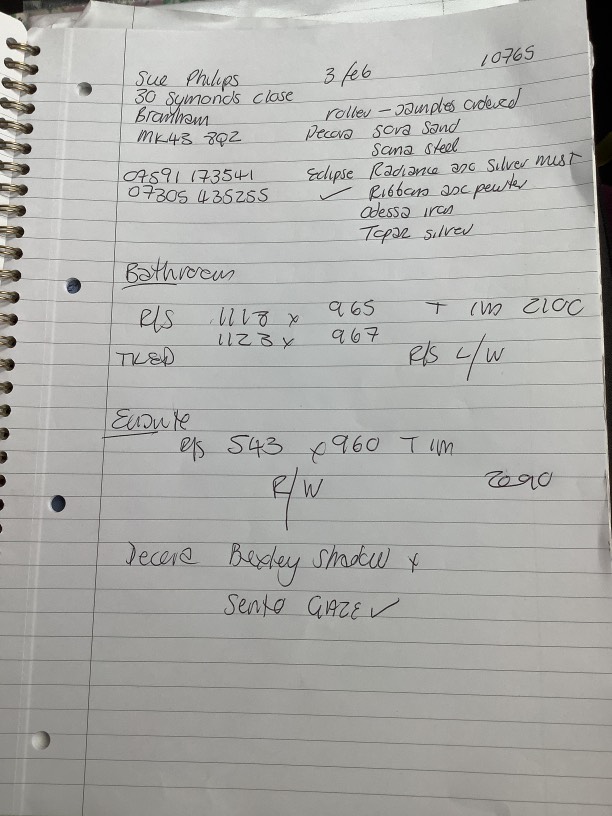 10765
Sue Philips 3 feb
30 Symonds close
Bramham roller - samples ordered
MK43 8QZ Decora sora sand
sama steel
07591 173541 Eclipse Radiance asc silver mist
07305 435255 ✓ Ribbons asc pewter
Odessa iron
Topaz silver
Bathroom
R/S 1118 x 965 T 1m 2100
1123 x 967
TILED R/S L/W
Ensuite
R/S 543 x 960 T 1m
R/W 2090
Decora Bexley shadow x
Sento GAZE ✓